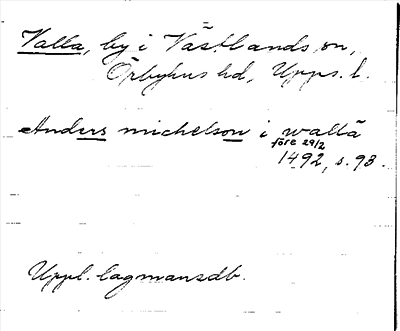 Valla, by i Västlands sn,
Örbyhus hd, Upps. l.
Anders michelson i wallā
före 29/2
1492, s. 98.
Uppl. lagmansdb.